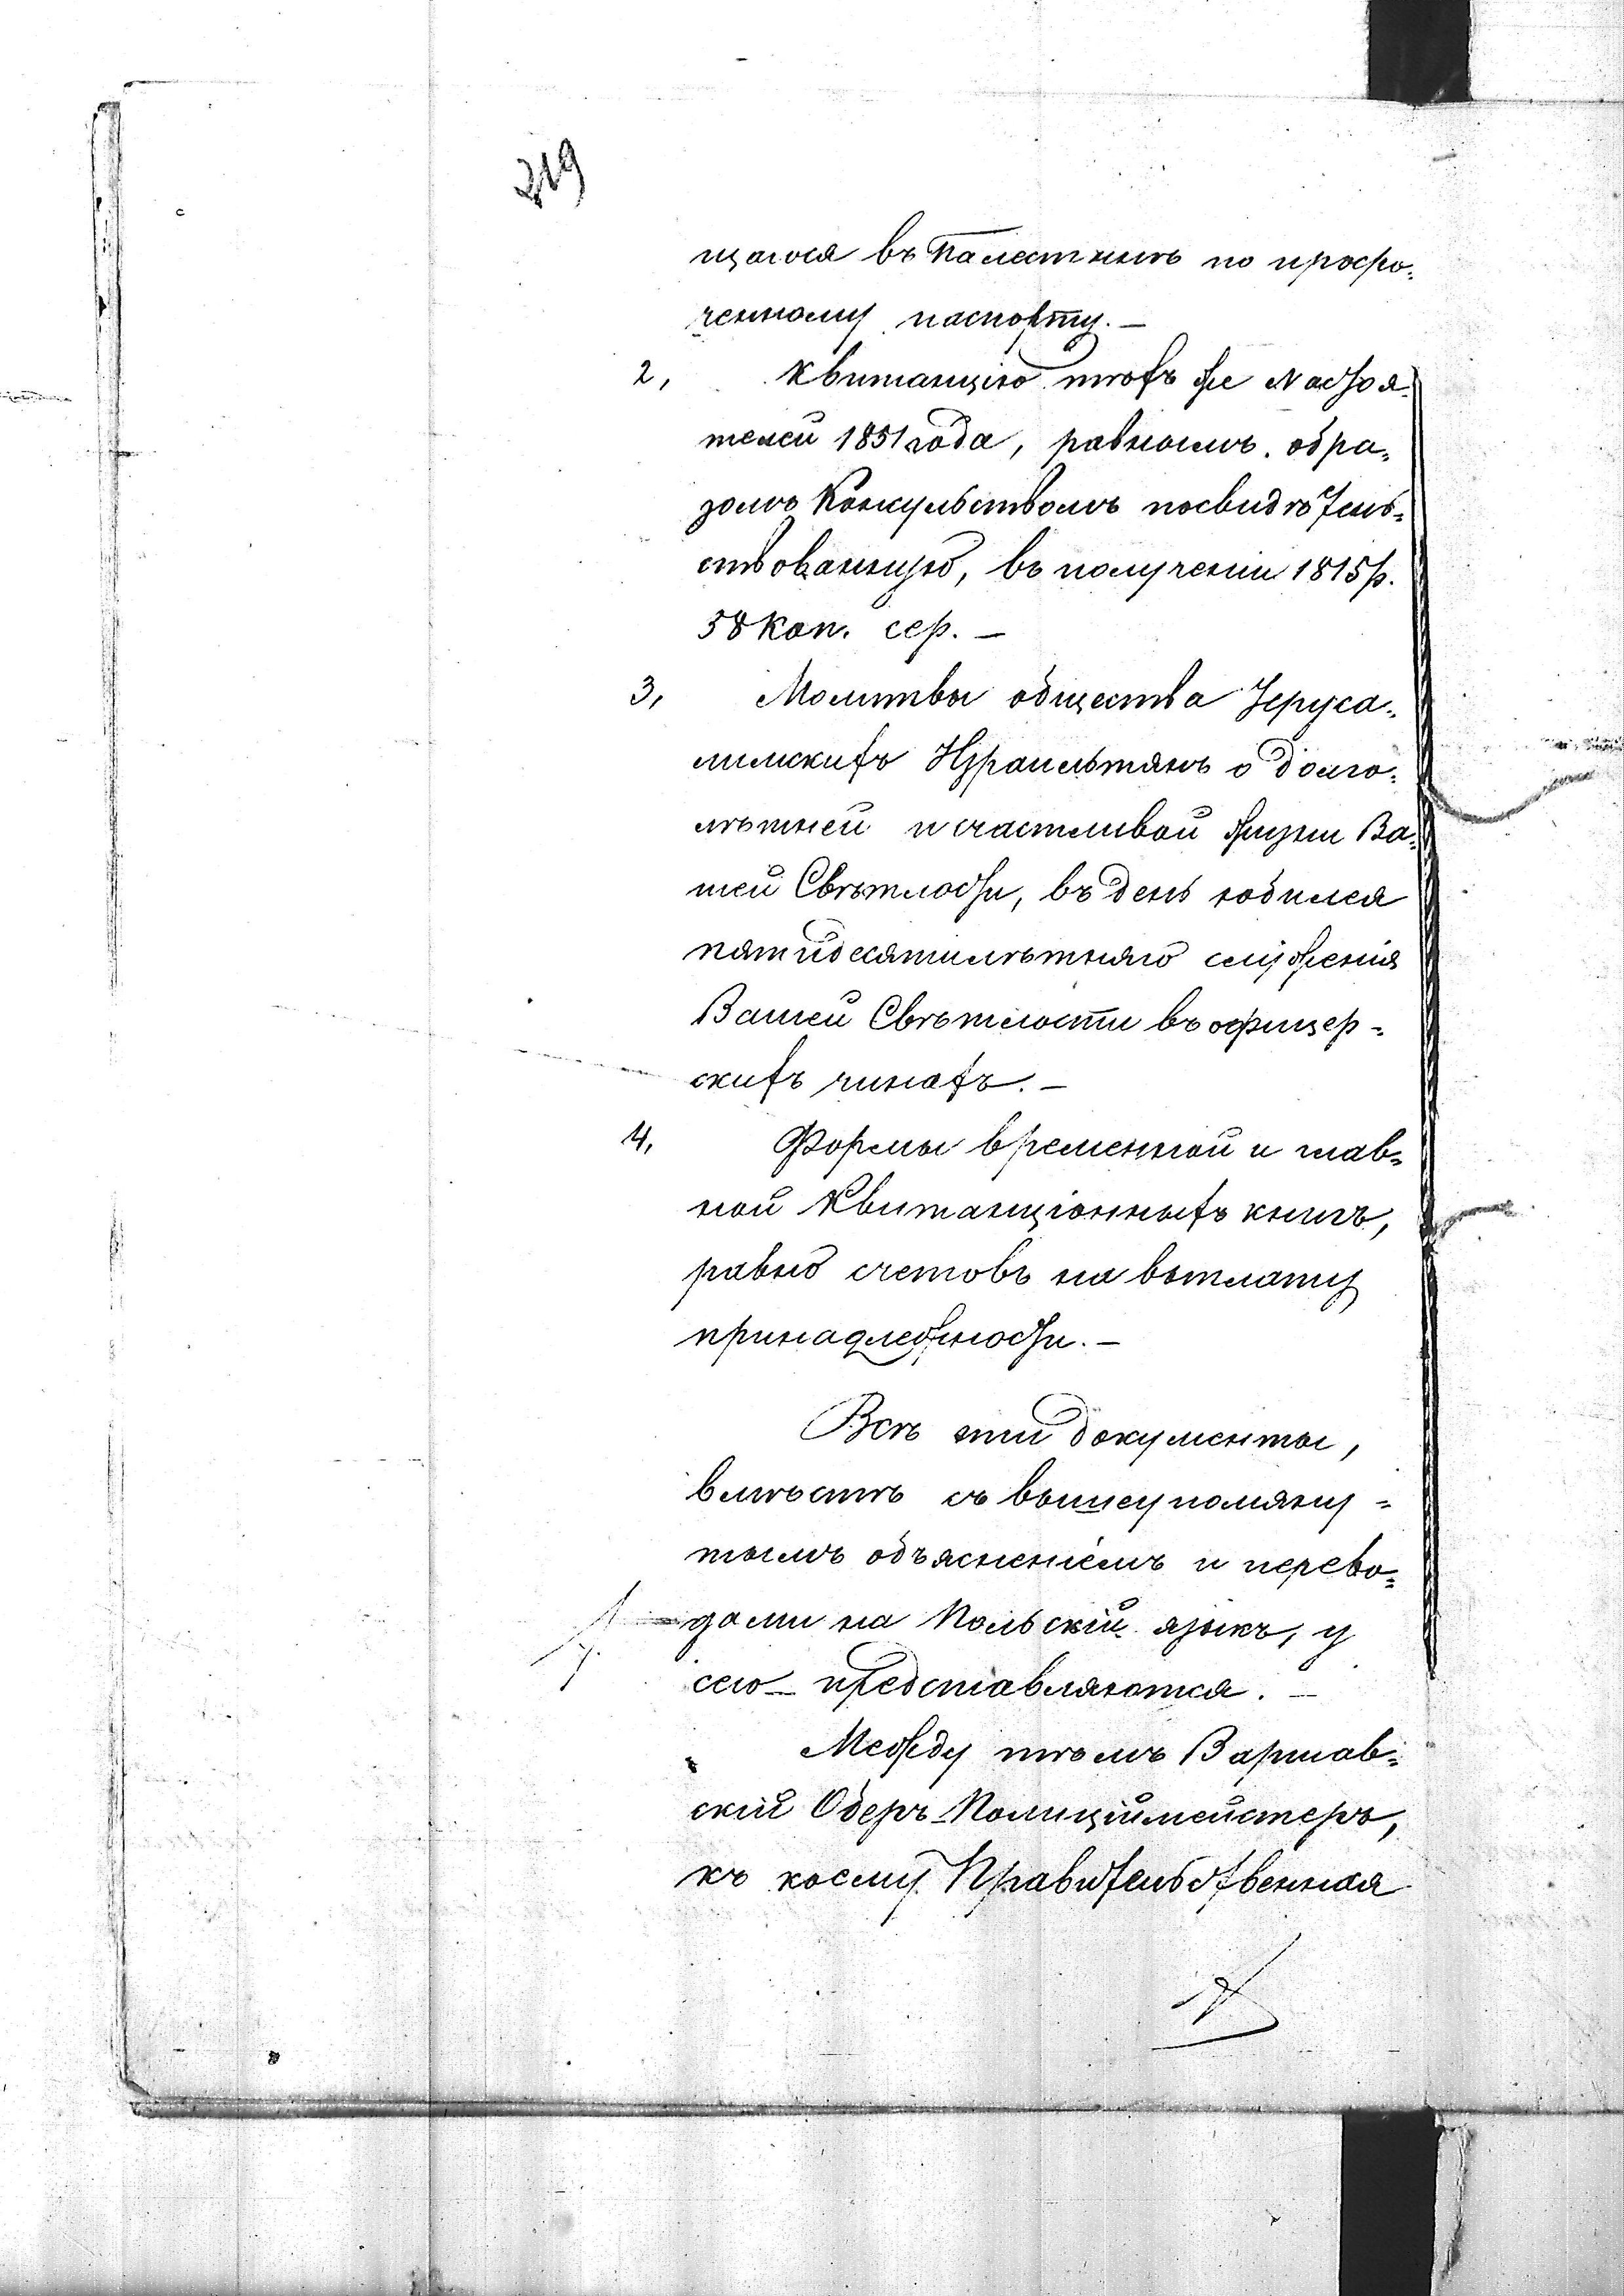 219
щагося въ Палестинѣ по просро=
ченному паспорту. —
2, Квитанцію тѣхъ же Настоя=
телей 1851 года, равномъ обра=
зомъ Консульствомъ посвидѣтель=
ствованную, въ полученіи 1815 р.
58 коп. сер. —
3, Молитвы общества Іеруса=
лимскихъ Израильтянъ о долго=
лѣтней и счастливой жизни Ва=
шей Свѣтлости, въ день юбилея
пятидесятилѣтняго служенія
Вашей Свѣтлости въ офицер=
скихъ чинахъ. —
4, Формы временной и глав=
ной Квитанціонныхъ книгъ,
равно счетовъ на выплату
принадлежности. —
Всѣ эти документы,
вмѣстѣ съ вышеупомяну=
тымъ объясненіемъ и перево=
дами на Польскій языкъ, у
сего представляются. —
Между тѣмъ Варшав=
скій Оберъ-Полиціймейстеръ,
къ коему Правительственная